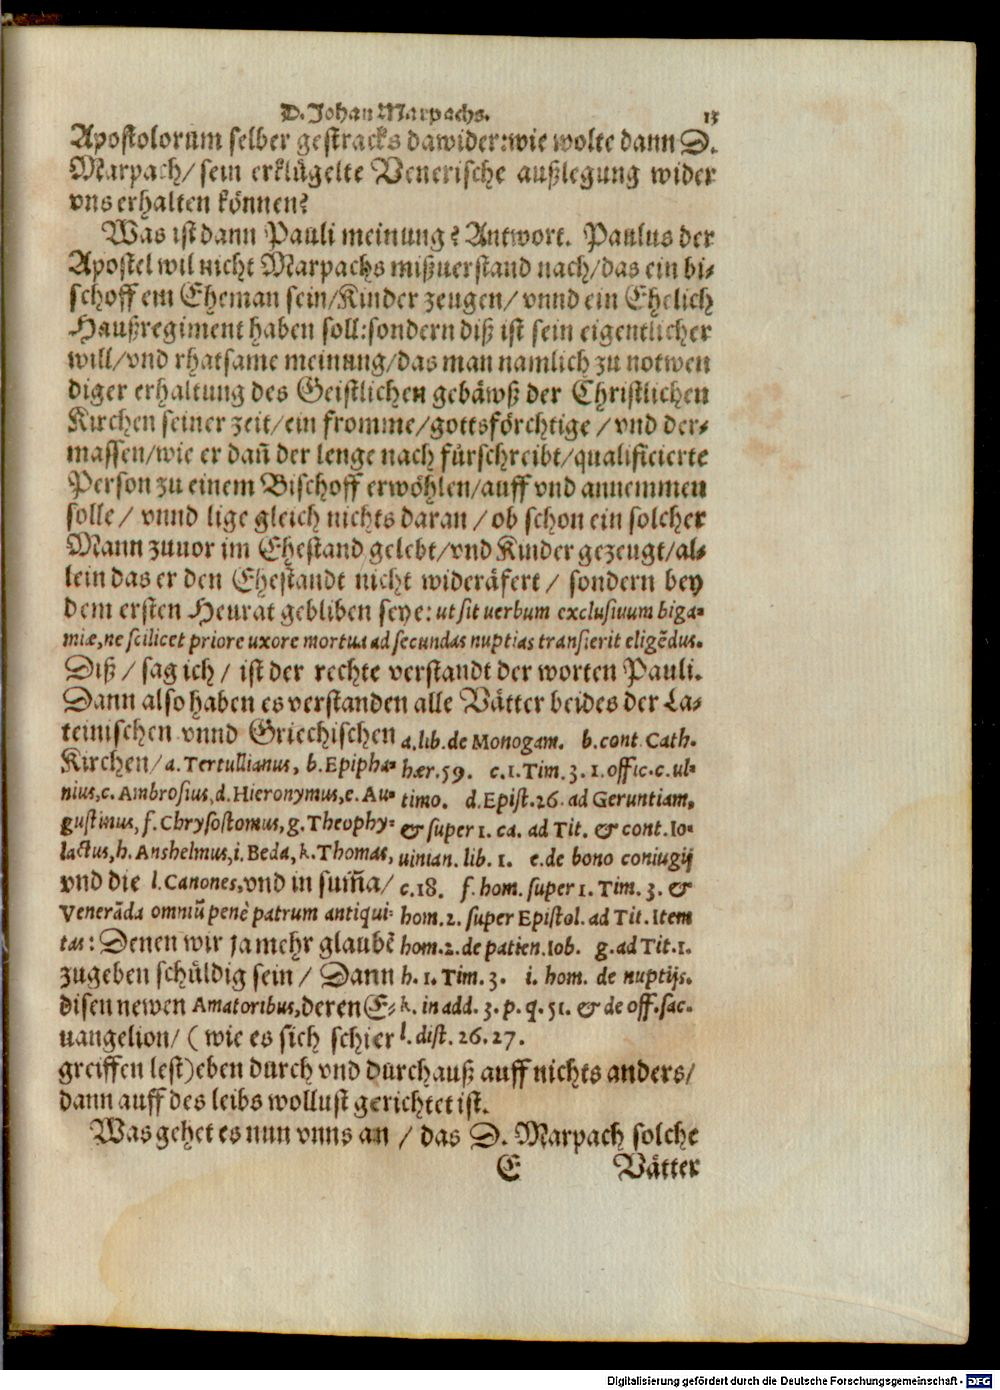 D. Johan Marpachs. 13
Apostolorum selber gestracks dawider: wie wolte dann D.
Marpach/ sein erklügelte Venerische außlegung wider
vns erhalten können?
Was ist dann Pauli meinung? Antwort. Paulus der
Apostel wil nicht Marpachs mißuerstand nach/ das ein bi-
schoff ein Eheman sein/ Kinder zeugen/ vnnd ein Ehelich
Haußregiment haben soll: sondern diß ist sein eigentlicher
will/ vnd rhatsame meinung/ das man namlich zu notwen
diger erhaltung des Geistlichen gebäwß der Christlichen
Kirchen seiner zeit/ ein fromme/ gottsförchtige / vnd der-
massen/ wie er dañ der lenge nach fürschreibt/ qualificierte
Person zu einem Bischoff erwöhlen/ auff vnd annemmen
solle/ vnnd lige gleich nichts daran / ob schon ein solcher
Mann zuuor im Ehestand gelebt/ vnd Kinder gezeugt/ al-
lein das er den Ehestandt nicht wideräfert / sondern bey
dem ersten Heurat gebliben seye: ut sit uerbum exclusiuum biga-
miæ, ne scilicet priore uxore mortua ad secundas nuptias transierit eligẽdus.
Diß / sag ich / ist der rechte verstandt der worten Pauli.
Dann also haben es verstanden alle Vätter beides der La-
teinischen vnnd Griechischen
Kirchen/ a. Tertullianus, b. Epipha-
nius, c. Ambrosius, d. Hieronymus, e. Au-
gustinus, f. Chrysostomus, g. Theophy-
lactus, h. Anshelmus, i. Beda, k. Thomas,
vnd die l. Canones, vnd in sum̃a/
Venerãda omniũ penè patrum antiqui-
tas: Denen wir ja mehr glaubẽ
zugeben schüldig sein / Dann
disen newen Amatoribus, deren E-
uangelion/ ( wie es sich schier
a. lib. de Monogam. b. cont. Cath.
hær. 59. c. 1. Tim. 3. 1. offic. c. ul-
timo. d. Epist. 26. ad Geruntiam,
& super 1. ca. ad Tit. & cont. Io-
uinian. lib. 1. e. de bono coniugij
c. 18. f. hom. super 1. Tim. 3. &
hom. 2. super Epistol. ad Tit. Item
hom. 2. de patien. Iob. g. ad Tit. 1.
h. 1. Tim. 3. i. hom. de nuptijs.
k. in add. 3. p. q. 51. & de off. sac.
l. dist. 26. 27.
greiffen lest) eben durch vnd durchauß auff nichts anders/
dann auff des leibs wollust gerichtet ist.
Was gehet es nun vnns an / das D. Marpach solche
E Vätter
Digitalisierung gefördert durch die Deutsche Forschungsgemeinschaft - DFG